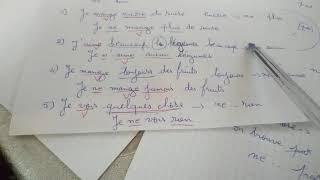 1) Je mange encore du sucre encore → ne plus
Je ne mange plus de sucre
2) J'aime beaucoup les légumes beaucoup
Je n'aime aucun légumes
4) Je mange toujours des fruits toujours → ne
Je ne mange jamais des fruits
5) Je vois quelques chose → ne rien
Je ne vois rien
on trouve pas
ne